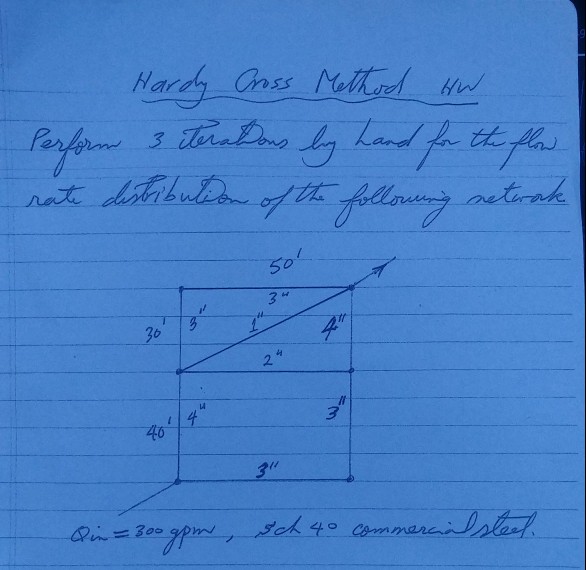 Hardy Cross Method HW
Perform 3 iterations by hand for the flow
rate distribution of the following network
50'
3"
30' 3" 1" 4"
2"
40' 4" 3"
3"
Qin = 300 gpm, Sch 40 commercial steel.